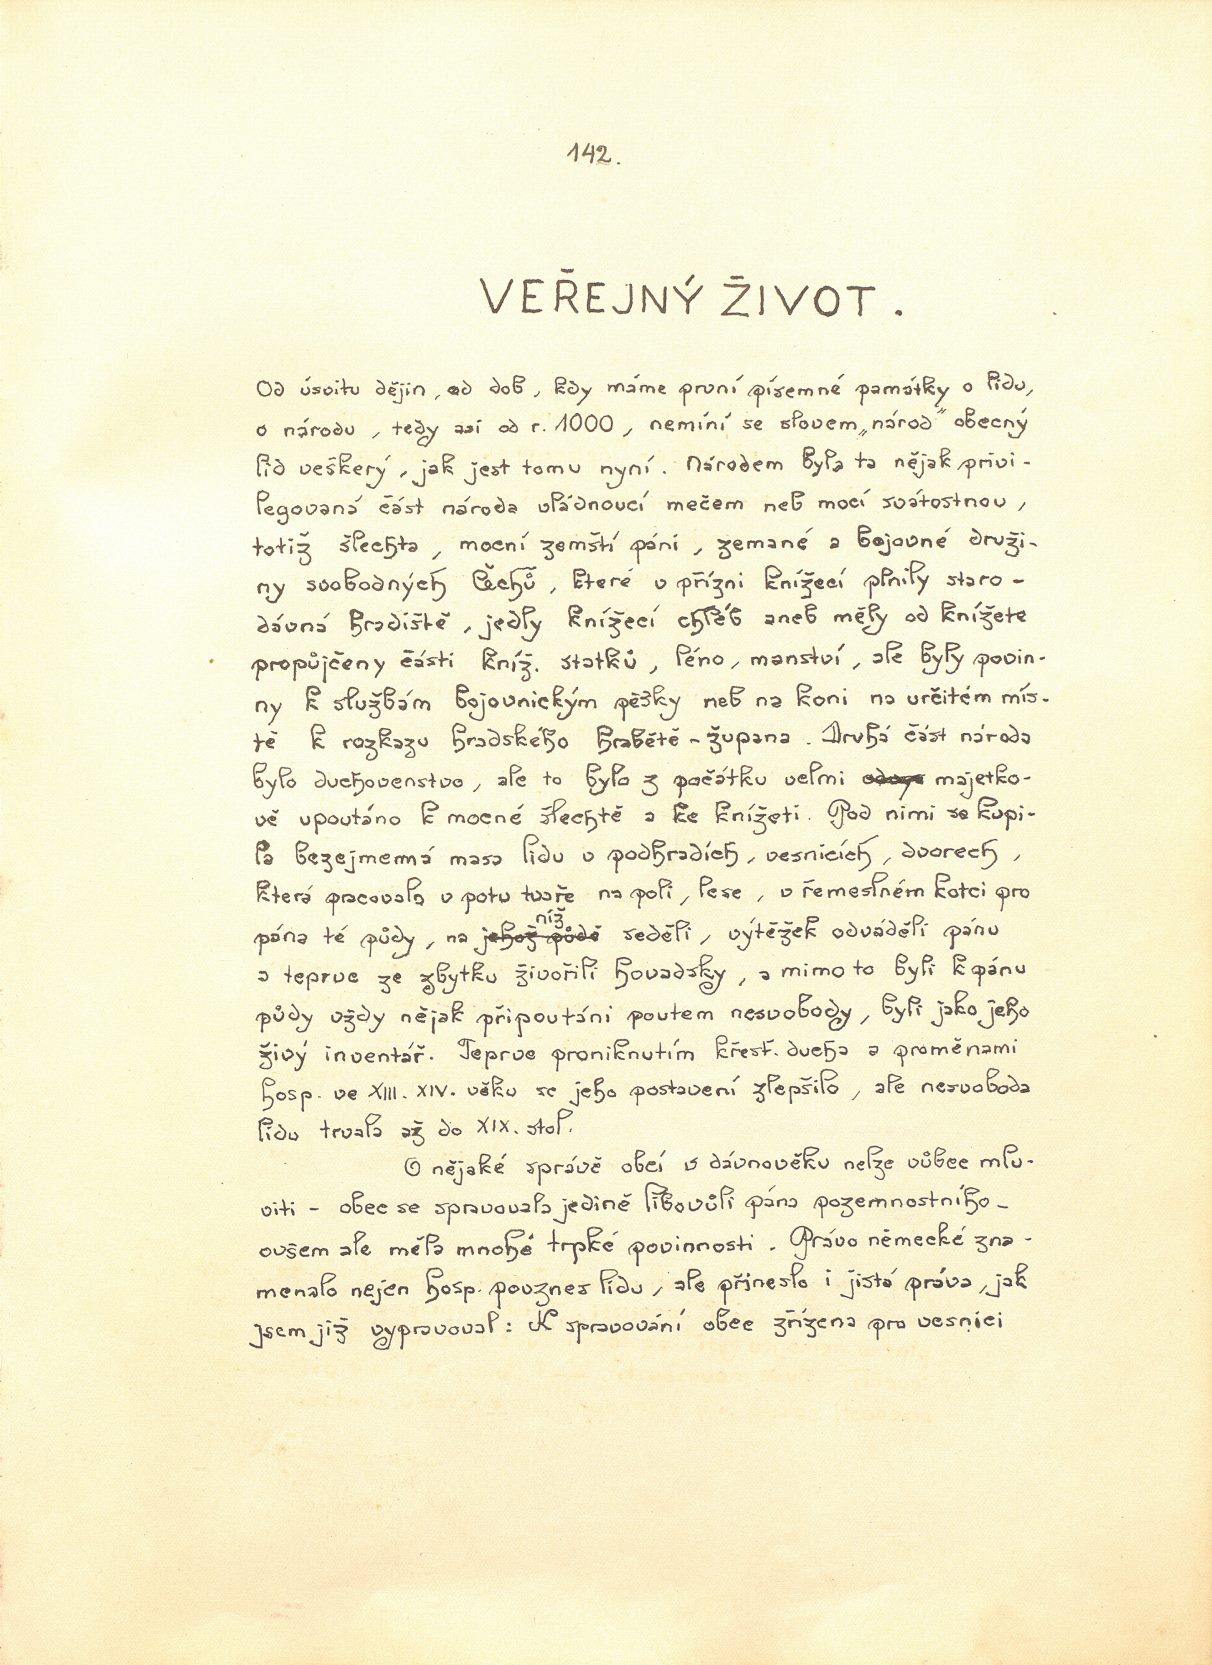 142.
VEŘEJNÝ ŽIVOT.
Od úsvitu dějin, od dob, kdy máme první písemné památky o lidu,
o národu, tedy asi od r. 1000, nemíní se slovem „národ" obecný
lid veškerý, jak jest tomu nyní. Národem byla ta nějak privi-
legovaná část národa vládnoucí mečem neb mocí svátostnou,
totiž šlechta, mocní zemští páni, zemané a bojovné druži-
ny svobodných Čechů, které v přízni knížecí plnily staro-
dávná hradiště, jedly knížecí chléb aneb měly od knížete
propůjčeny části kníž. statků, léno, manství, ale byly povin-
ny k službám bojovnickým pěšky neb na koni na určitém mís-
tě k rozkazu hradského hraběte - župana. Druhá část národa
bylo duchovenstvo, ale to bylo z počátku velmi majetko-
vě upoutáno k mocné šlechtě a ke knížeti. Pod nimi se kupi-
la bezejmenná masa lidu v podhradích, vesnicích, dvorech,
která pracovala v potu tváře na poli, lese, v řemeslném kotci pro
pána té půdy, na jehož půdě níž seděli, výtěžek odváděli pánu
a teprve ze zbytku živořili hovadsky, a mimo to byli k pánu
půdy vždy nějak připoutáni poutem nesvobody, byli jako jeho
živý inventář. Teprve proniknutím křest. ducha a proměnami
hosp. ve XIII. XIV. věku se jeho postavení zlepšilo, ale nesvoboda
lidu trvala až do XIX. stol.
O nějaké správě obcí v dávnověku nelze vůbec mlu-
viti - obec se spravovala jedině libovůlí pána pozemnostního -
ovšem ale měla mnohé trpké povinnosti. Právo německé zna-
menalo nejen hosp. povznes lidu, ale přineslo i jistá práva, jak
jsem již vypravoval: K spravování obec zřízena pro vesnici